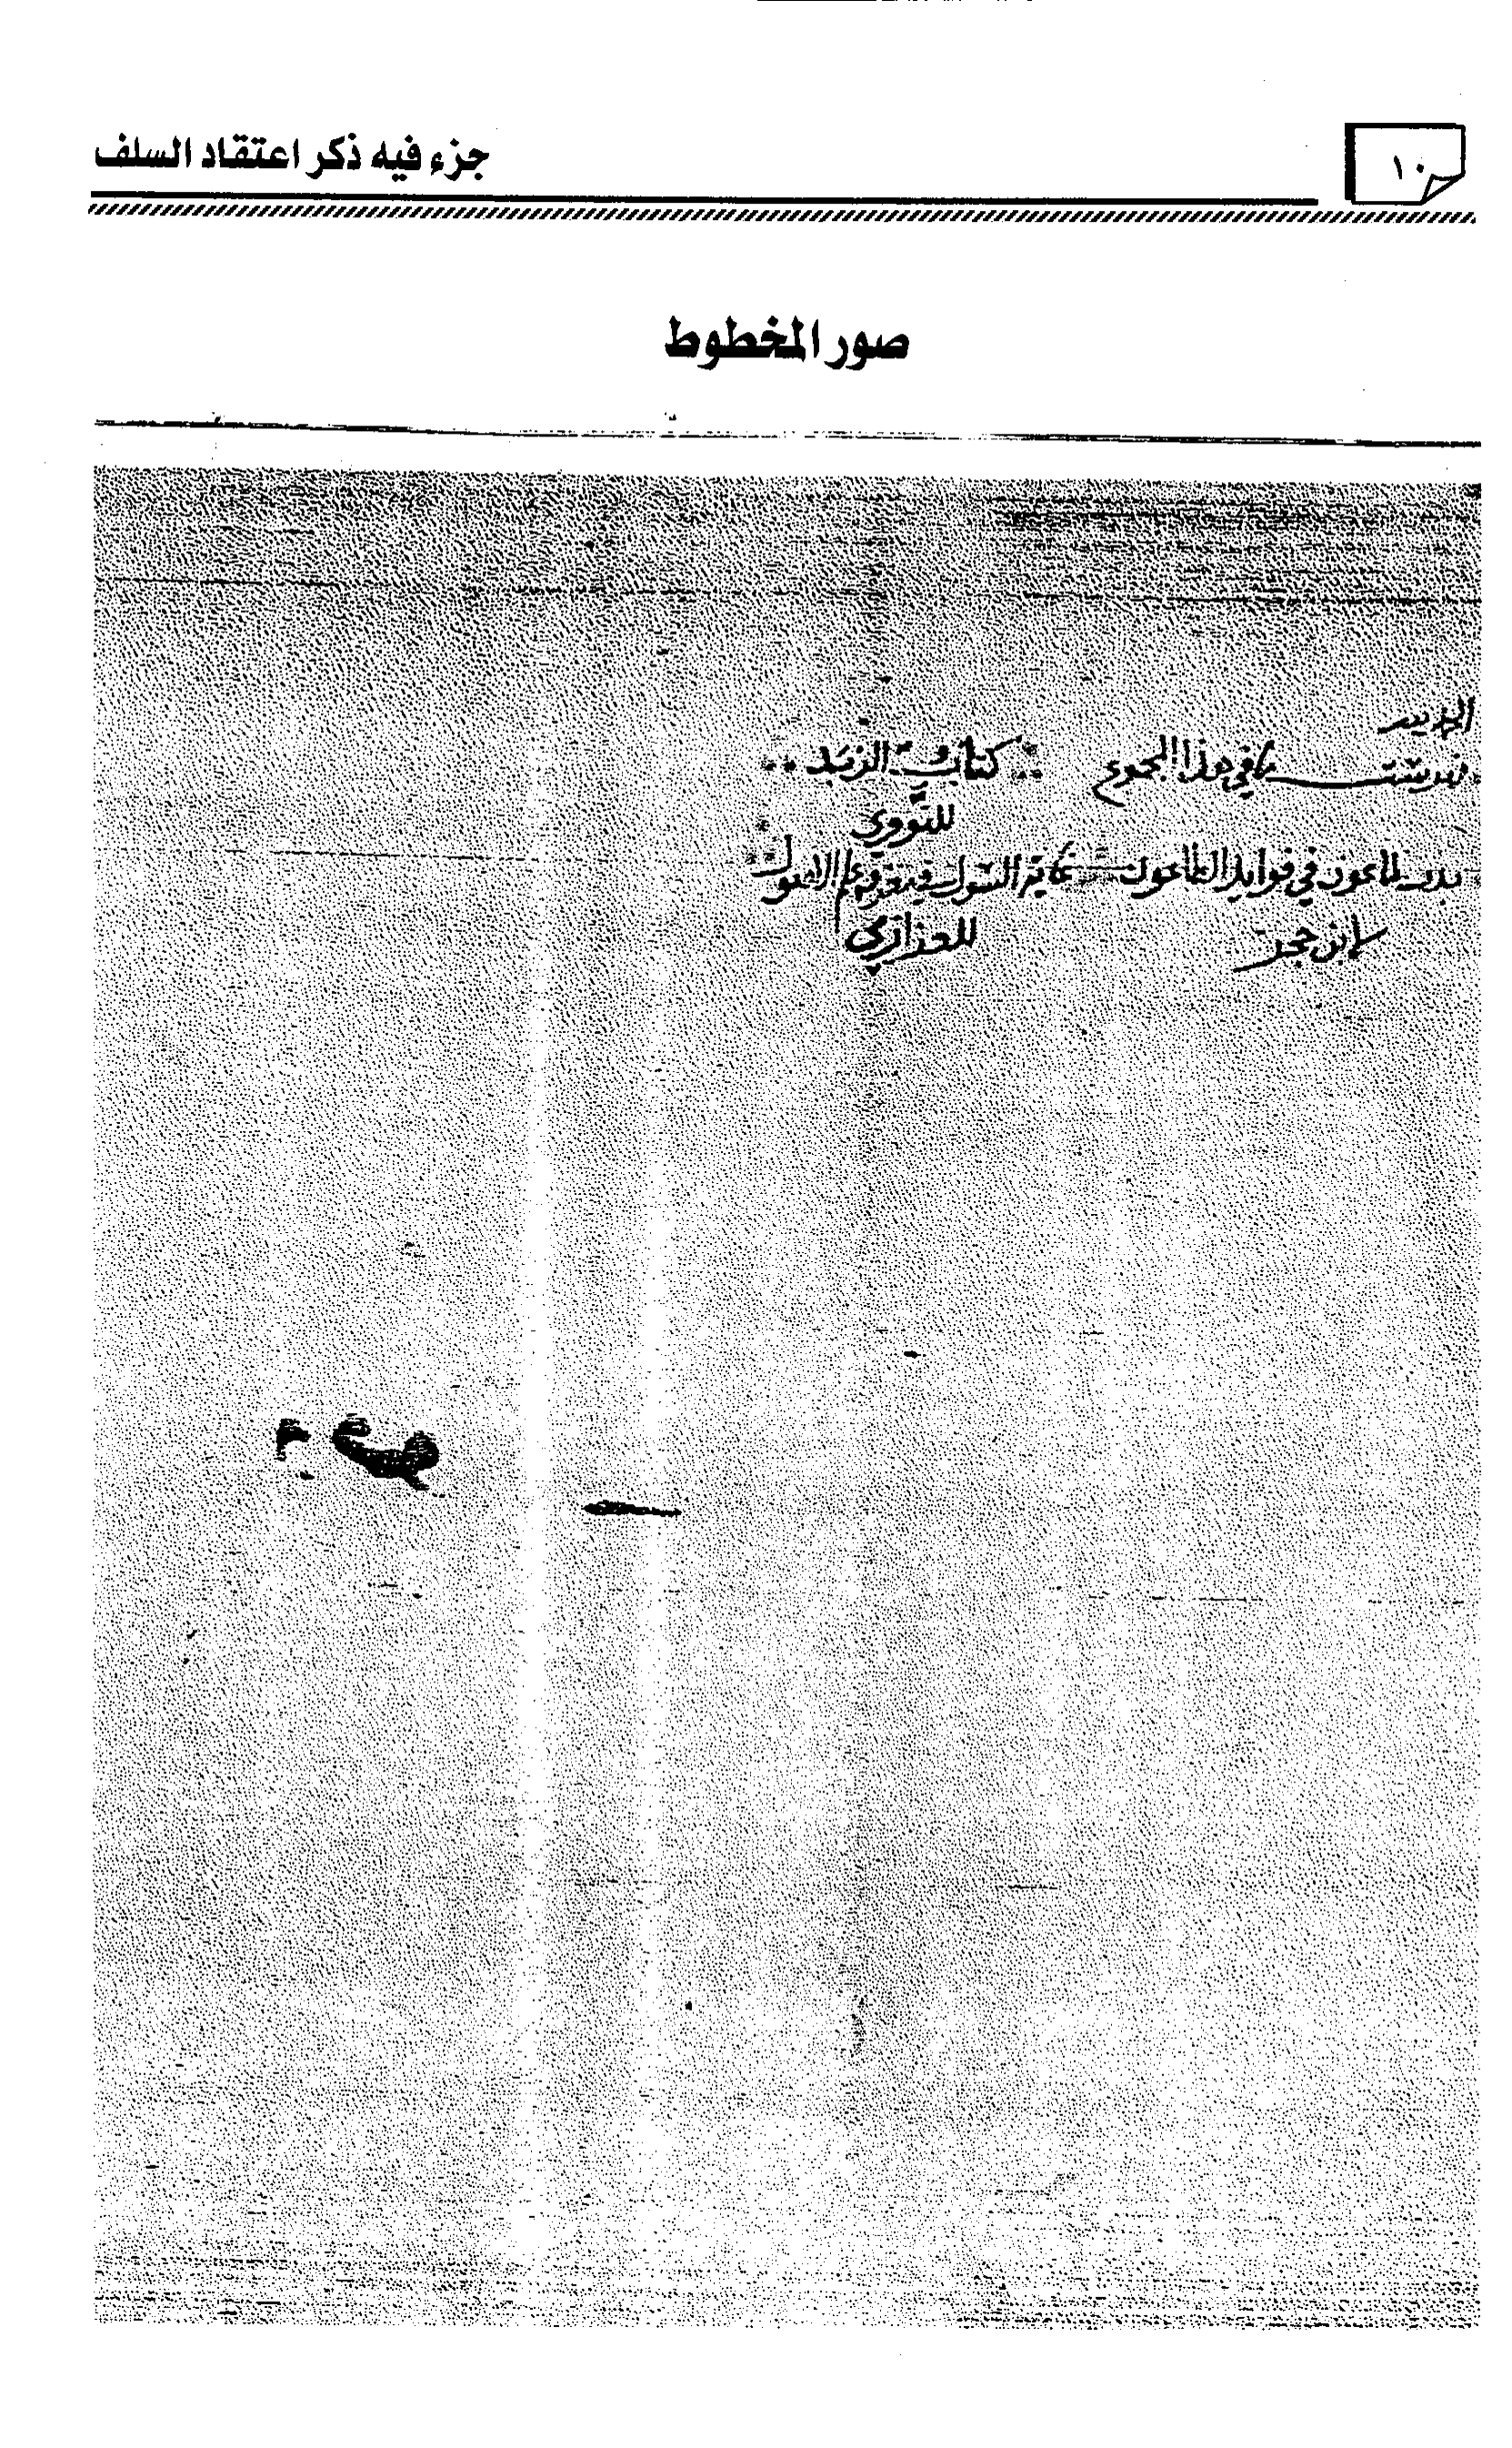 ١٠
جزء فيه ذكر اعتقاد السلف
صور المخطوط
فهرست ما في هذا المجموع كتاب الزبد
للنووي
بذل الماعون في فوايد الطاعون السول في الاصول
لابن حجر